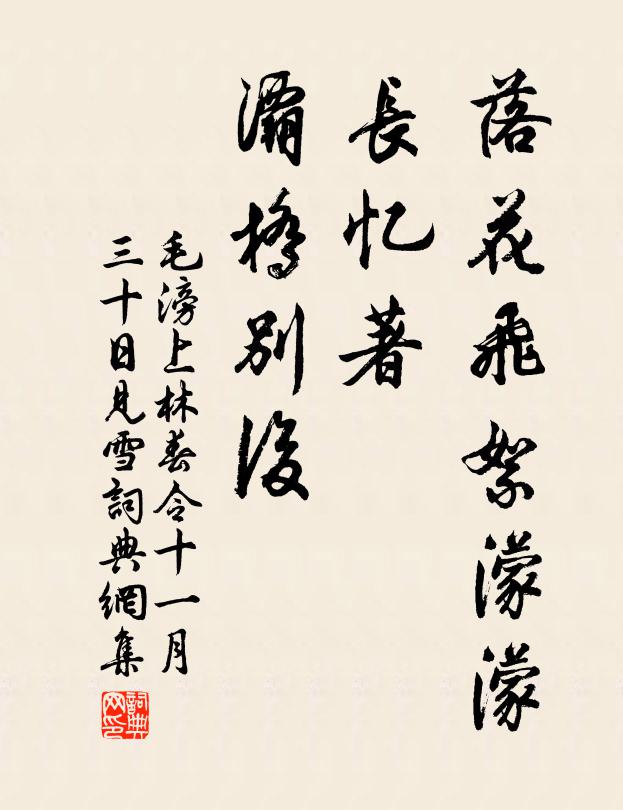 落花飛絮濛濛
長忆著
灞橋別後
毛滂上林春令十一月
三十日見雪詞典網集
詞典網印